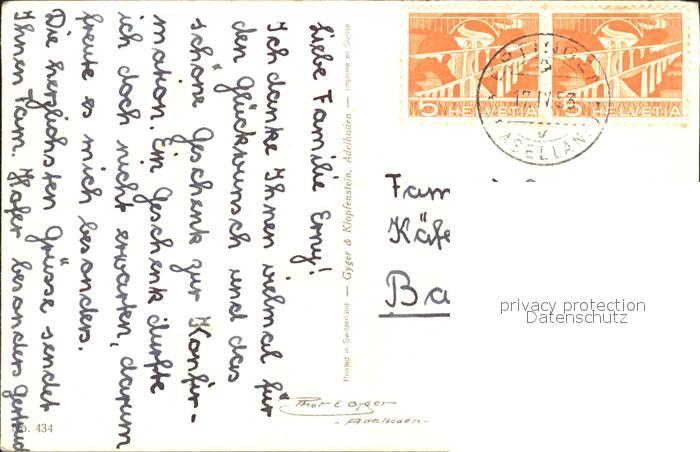 Liebe Familie Erny!
Ich danke Ihnen vielmal für
den Glückwunsch und das
schöne Geschenk zur Konfir-
mation. Ein Geschenk durfte
ich doch nicht erwarten, darum
freute es mich besonders.
Die herzlichsten Grüsse sendet
Ihnen Fam. Hofer besonders Gertrud
No. 434
Printed in Switzerland — Gyger & Klopfenstein, Adelboden — Imprimé en Suisse
Phot E Gyger
- Adelboden -
5 HELVETIA 5 HELVETIA
(BASELLAND)
Fam
Käfe
Ba
privacy protection
Datenschutz